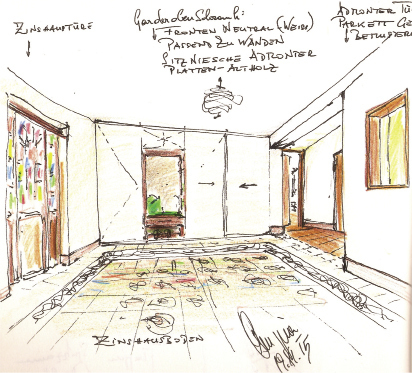 ZINSHAUSTÜRE
Garderobenschrank:
FRONTEN NEUTRAL (WEISS)
PASSEND ZU WÄNDEN
SITZNIESCHE ADRONTER
PLATTEN - ALTHOLZ
ADRONTER TÜ
PARKETT GE
ZINSHAUSBODEN